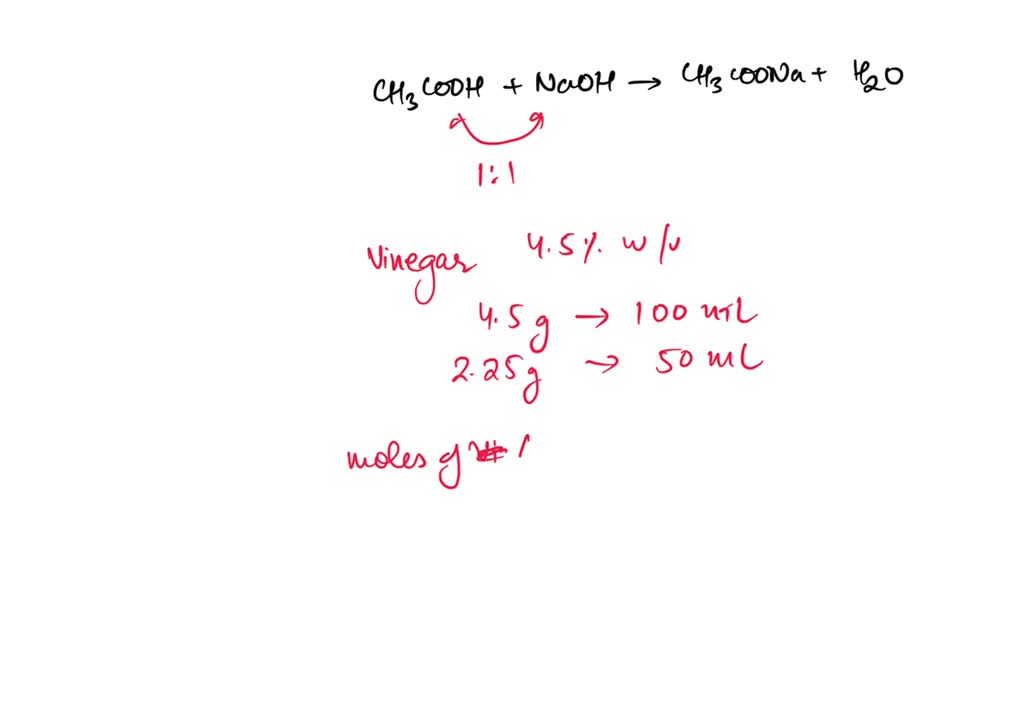 CH₃COOH + NaOH → CH₃COONa + H₂O
1:1
Vinegar 4.5% w/v
4.5g → 100 mL
2.25g → 50 mL
moles of